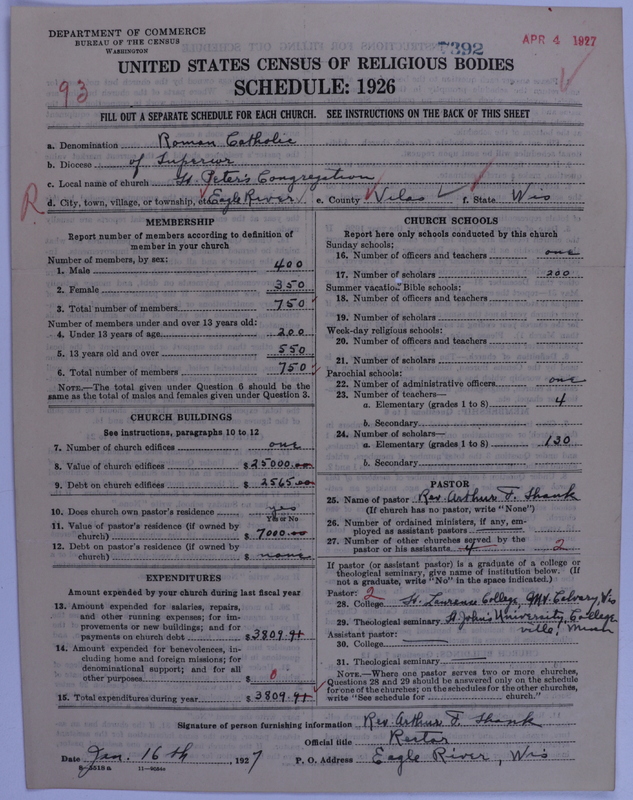 DEPARTMENT OF COMMERCE
BUREAU OF THE CENSUS
WASHINGTON
7392
APR 4 1927
UNITED STATES CENSUS OF RELIGIOUS BODIES
SCHEDULE: 1926
93
FILL OUT A SEPARATE SCHEDULE FOR EACH CHURCH. SEE INSTRUCTIONS ON THE BACK OF THIS SHEET
a. Denomination Roman Catholic
b. Diocese of Superior
c. Local name of church St. Peter's Congregation
R
d. City, town, village, or township, etc. Eagle River e. County Vilas f. State Wis
MEMBERSHIP
Report number of members according to definition of
member in your church
Number of members, by sex:
1. Male 400
2. Female 350
3. Total number of members 750
Number of members under and over 13 years old:
4. Under 13 years of age 200
5. 13 years old and over 550
6. Total number of members 750
NOTE.—The total given under Question 6 should be the
same as the total of males and females given under Question 3.
CHURCH BUILDINGS
See instructions, paragraphs 10 to 12
7. Number of church edifices one
8. Value of church edifices $ 25000.00
9. Debt on church edifices $ 2565.00
10. Does church own pastor's residence yes
Yes or No
11. Value of pastor's residence (if owned by
church) $ 7000.00
12. Debt on pastor's residence (if owned by
church) $ none
EXPENDITURES
Amount expended by your church during last fiscal year
13. Amount expended for salaries, repairs,
and other running expenses; for im-
provements or new buildings; and for
payments on church debt $ 3809.91
14. Amount expended for benevolences, in-
cluding home and foreign missions; for
denominational support; and for all
other purposes $ 0
15. Total expenditures during year $ 3809.91
CHURCH SCHOOLS
Report here only schools conducted by this church
Sunday schools:
16. Number of officers and teachers one
17. Number of scholars 200
Summer vacation Bible schools:
18. Number of officers and teachers
19. Number of scholars
Week-day religious schools:
20. Number of officers and teachers
21. Number of scholars
Parochial schools:
22. Number of administrative officers one
23. Number of teachers—
a. Elementary (grades 1 to 8) 4
b. Secondary
24. Number of scholars—
a. Elementary (grades 1 to 8) 130
b. Secondary
PASTOR
25. Name of pastor Rev Arthur F. Shank
(If church has no pastor, write "None")
26. Number of ordained ministers, if any, em-
ployed as assistant pastors
27. Number of other churches served by the
pastor or his assistants 4 2
If pastor (or assistant pastor) is a graduate of a college or
theological seminary, give name of institution below. (If
not a graduate, write "No" in the space indicated.)
Pastor: 2
28. College St. Lawrence College, Mt. Calvary, Wis
29. Theological seminary St John's University, College
ville, Minn
Assistant pastor:
30. College
31. Theological seminary
NOTE.—Where one pastor serves two or more churches,
Questions 28 and 29 should be answered only on the schedule
for one of the churches; on the schedules for the other churches,
write "See schedule for church."
Signature of person furnishing information Rev Arthur F. Shank
Official title Rector
Date Jan. 16th, 1927 P. O. Address Eagle River, Wis
8-5518a 11-9084